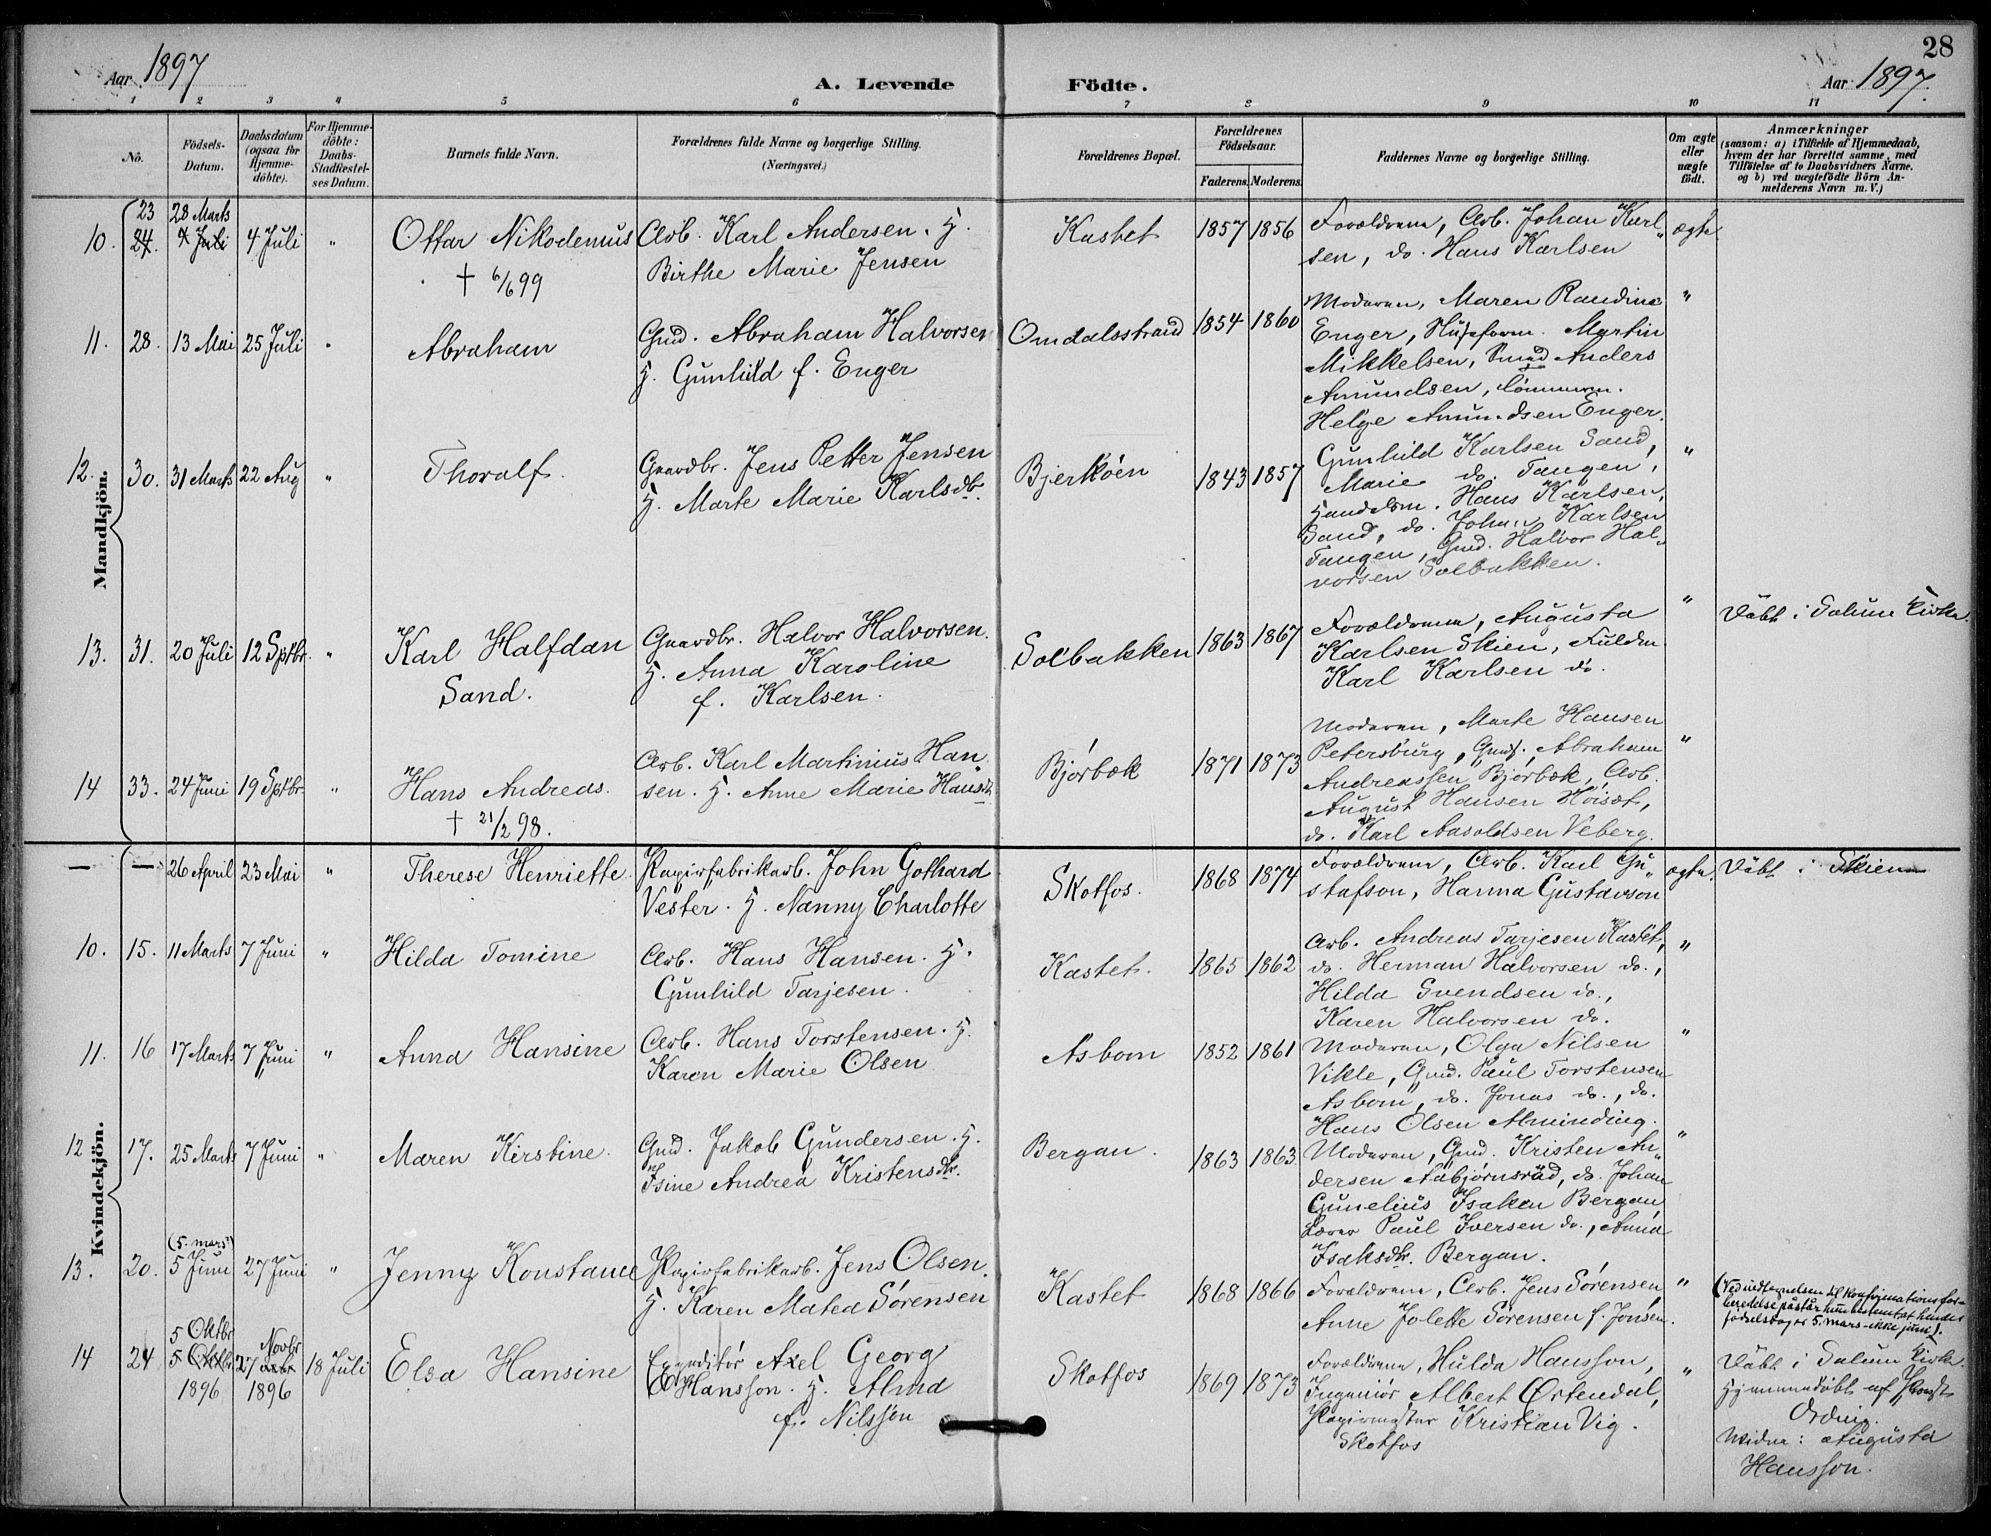 28
Aar 1897
A. Levende
Födte.
Aar 1897.
1 2 3 4 5 6 7 8 9 10 11
No.
Födsels-
Datum.
Daabsdatum
(ogsaa for
Hjemme-
döbte).
For Hjemme-
döbte:
Daabs-
Stadfæstel-
ses Datum.
Barnets fulde Navn.
Forældrenes fulde Navne og borgerlige Stilling.
(Næringsvei.)
Forældrenes Bopæl.
Forældrenes
Födselsaar.
Faderens. Moderens.
Faddernes Navne og borgerlige Stilling.
Om ægte
eller
uægte
födt.
Anmærkninger
(saasom: a) i Tilfælde af Hjemmedaab,
hvem der har forrettet samme, med
Tilföielse af to Daabsvidners Navne.
og b) ved uægtefödte Börn An-
melderens Navn m. V.)
Mandkjön.
10. 23 24. 28 Marts 4 Juli 4 Juli "
Ottar Nikodemus
† 6/6 99
Arb. Karl Andersen. H.
Birthe Marie Jensen
Kastet 1857 1856
Forældrene, Arb. Johan Karl„
sen, do. Hans Karlsen
ægte
11. 28. 13 Mai 25 Juli "
Abraham
Gmd. Abraham Halvorsen
H. Gunhild f. Enger
Omdalsstrand 1854 1860
Moderen, Maren Randine
Enger, Husform. Martin
Mikkelsen, Smed Anders
Amundsen, Tömmerm.
Helge Amundsen Enger.
"
12. 30. 31 Marts 22 Aug "
Thoralf.
Gaardbr. Jens Petter Jensen
H. Marte Marie Karlsdtr.
Bjerköen 1843 1857
Gunhild Karlsen Sand,
Marie do. Tangen,
Handelsm. Hans Karlsen,
Sand, do. Johan Karlsen
Tangen, Gmd. Halvor Hal„
vorsen Solbakken.
"
13. 31. 20 Juli 12 Sptbr. "
Karl Halfdan
Sand.
Gaardbr. Halvor Halvorsen.
H. Anna Karoline
f. Karlsen.
Solbakken 1863 1867
Forældrene, Augusta
Karlsen Skien, Fuldm.
Karl Karlsen do.
"
Döbt i Solum Kirke.
14 33. 24 Juni 19 Sptbr. "
Hans Andreas.
† 21/2 98.
Arb. Karl Martinius Han„
sen. H. Anne Marie Hansdtr.
Bjørbæk 1871 1873
Moderen, Marte Hansen
Petersburg, Gmd. Abraham
Andreassen Bjørbæk, Arb.
August Hansen Høisæt,
do. Karl Aasoldsen Veberg.
"
Kvindekjön.
— — 26 April 23 Mai "
Therese Henriette.
Papirfabrikarb. John Gothard
Vester. H. Nanny Charlotte
Skotfos. 1868 1874
Forældrene, Arb. Karl Gu„
stafson, Hanna Gustavson
ægte.
Döbt i Skien
10. 15. 11 Marts 7 Juni "
Hilda Tomine
Arb. Hans Hansen. H.
Gunhild Tarjesen.
Kastet. 1865 1862
Arb. Andreas Tarjesen Kastet,
do. Herman Halvorsen do.,
Hilda Svendsen do.,
Karen Halvorsen do.
"
11. 16 17 Marts 7 Juni "
Anna Hansine
Arb. Hans Torstensen. H.
Karen Marie Olsen
Asbom 1852 1861
Moderen, Olga Nilsen
Vikle, Gmd. Paul Torstensen
Asbom, do. Jonas do., do.
Hans Olsen Alminding.
"
12 17. 25 Marts 7 Juni "
Maren Kirstine.
Gmd. Jakob Gundersen. H.
Isine Andrea Kristensdtr.
Bergan. 1863 1863
Moderen, Gmd. Kristen An„
dersen Aabjørnsrød, do. Johan
Gunelius Isaksen Bergan,
Lærer Paul Iversen do., Anna
Isaksdtr. Bergan.
"
13. 20. (5. mars?) 5 Juni 27 Juni "
Jenny Konstance
Papirfabrikarb. Jens Olsen.
H. Karen Matea Sörensen
Kastet 1868 1866
Forældrene, Arb. Jens Sörensen,
Anne Jolette Sörensen f. Jonsen.
"
(Ved indtegnelsen til konfirmationsfor-
beredelse påstår hun bestemt at hendes
fødselsdag er 5. mars - ikke juni).
14 24 5 Oktbr 5 Oktbr 1896 Novbr 27 1896 18 Juli
Elsa Hansine
Expeditör Axel Georg
Hansson. H. Alma
f. Nilsson
Skotfos 1869 1873
Forældrene, Hulda Hansson,
Ingeniør Albert Ørtendal,
Papirmester Kristian Vig.
Skotfos
"
Döbt i Solum Kirke.
Hjemmedöbt af Præst
Vidne: Augusta
Hansson.